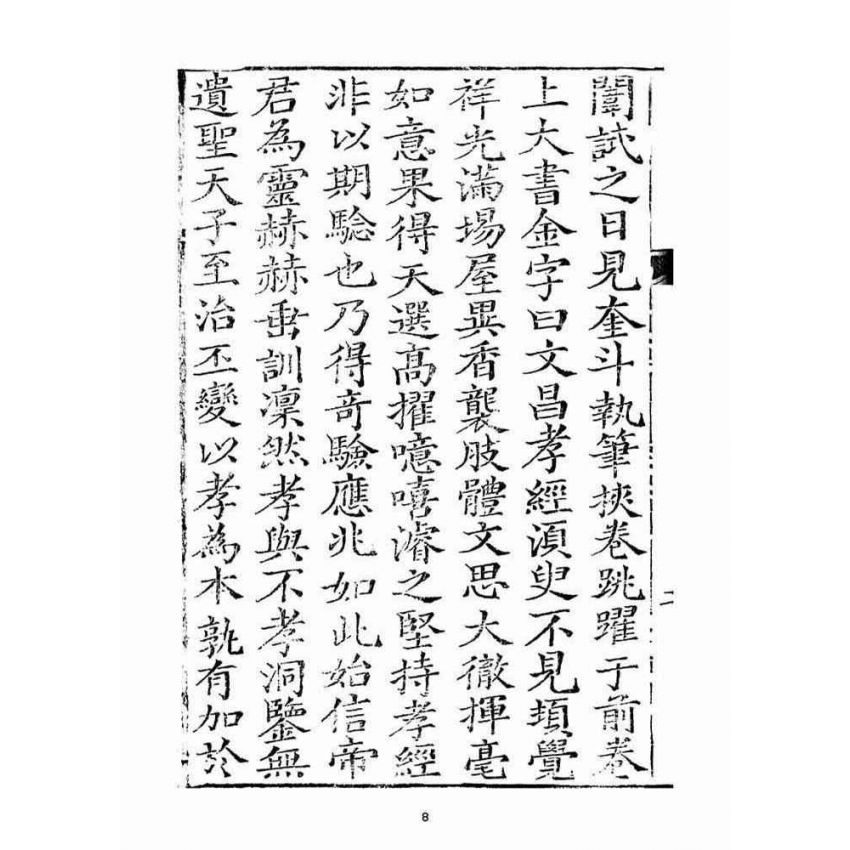 闈試之日見奎斗執筆挾卷跳躍于前卷
上大書金字曰文昌孝經湏臾不見頃覺
祥光滿場屋異香襲肢體文思大徹揮毫
如意果得天選高擢噫嘻濬之堅持孝經
非以期驗也乃得奇驗應兆如此始信帝
君為靈赫赫垂訓凜然孝與不孝洞鑒無
遺聖天子至治丕變以孝為本孰有加於
二
8